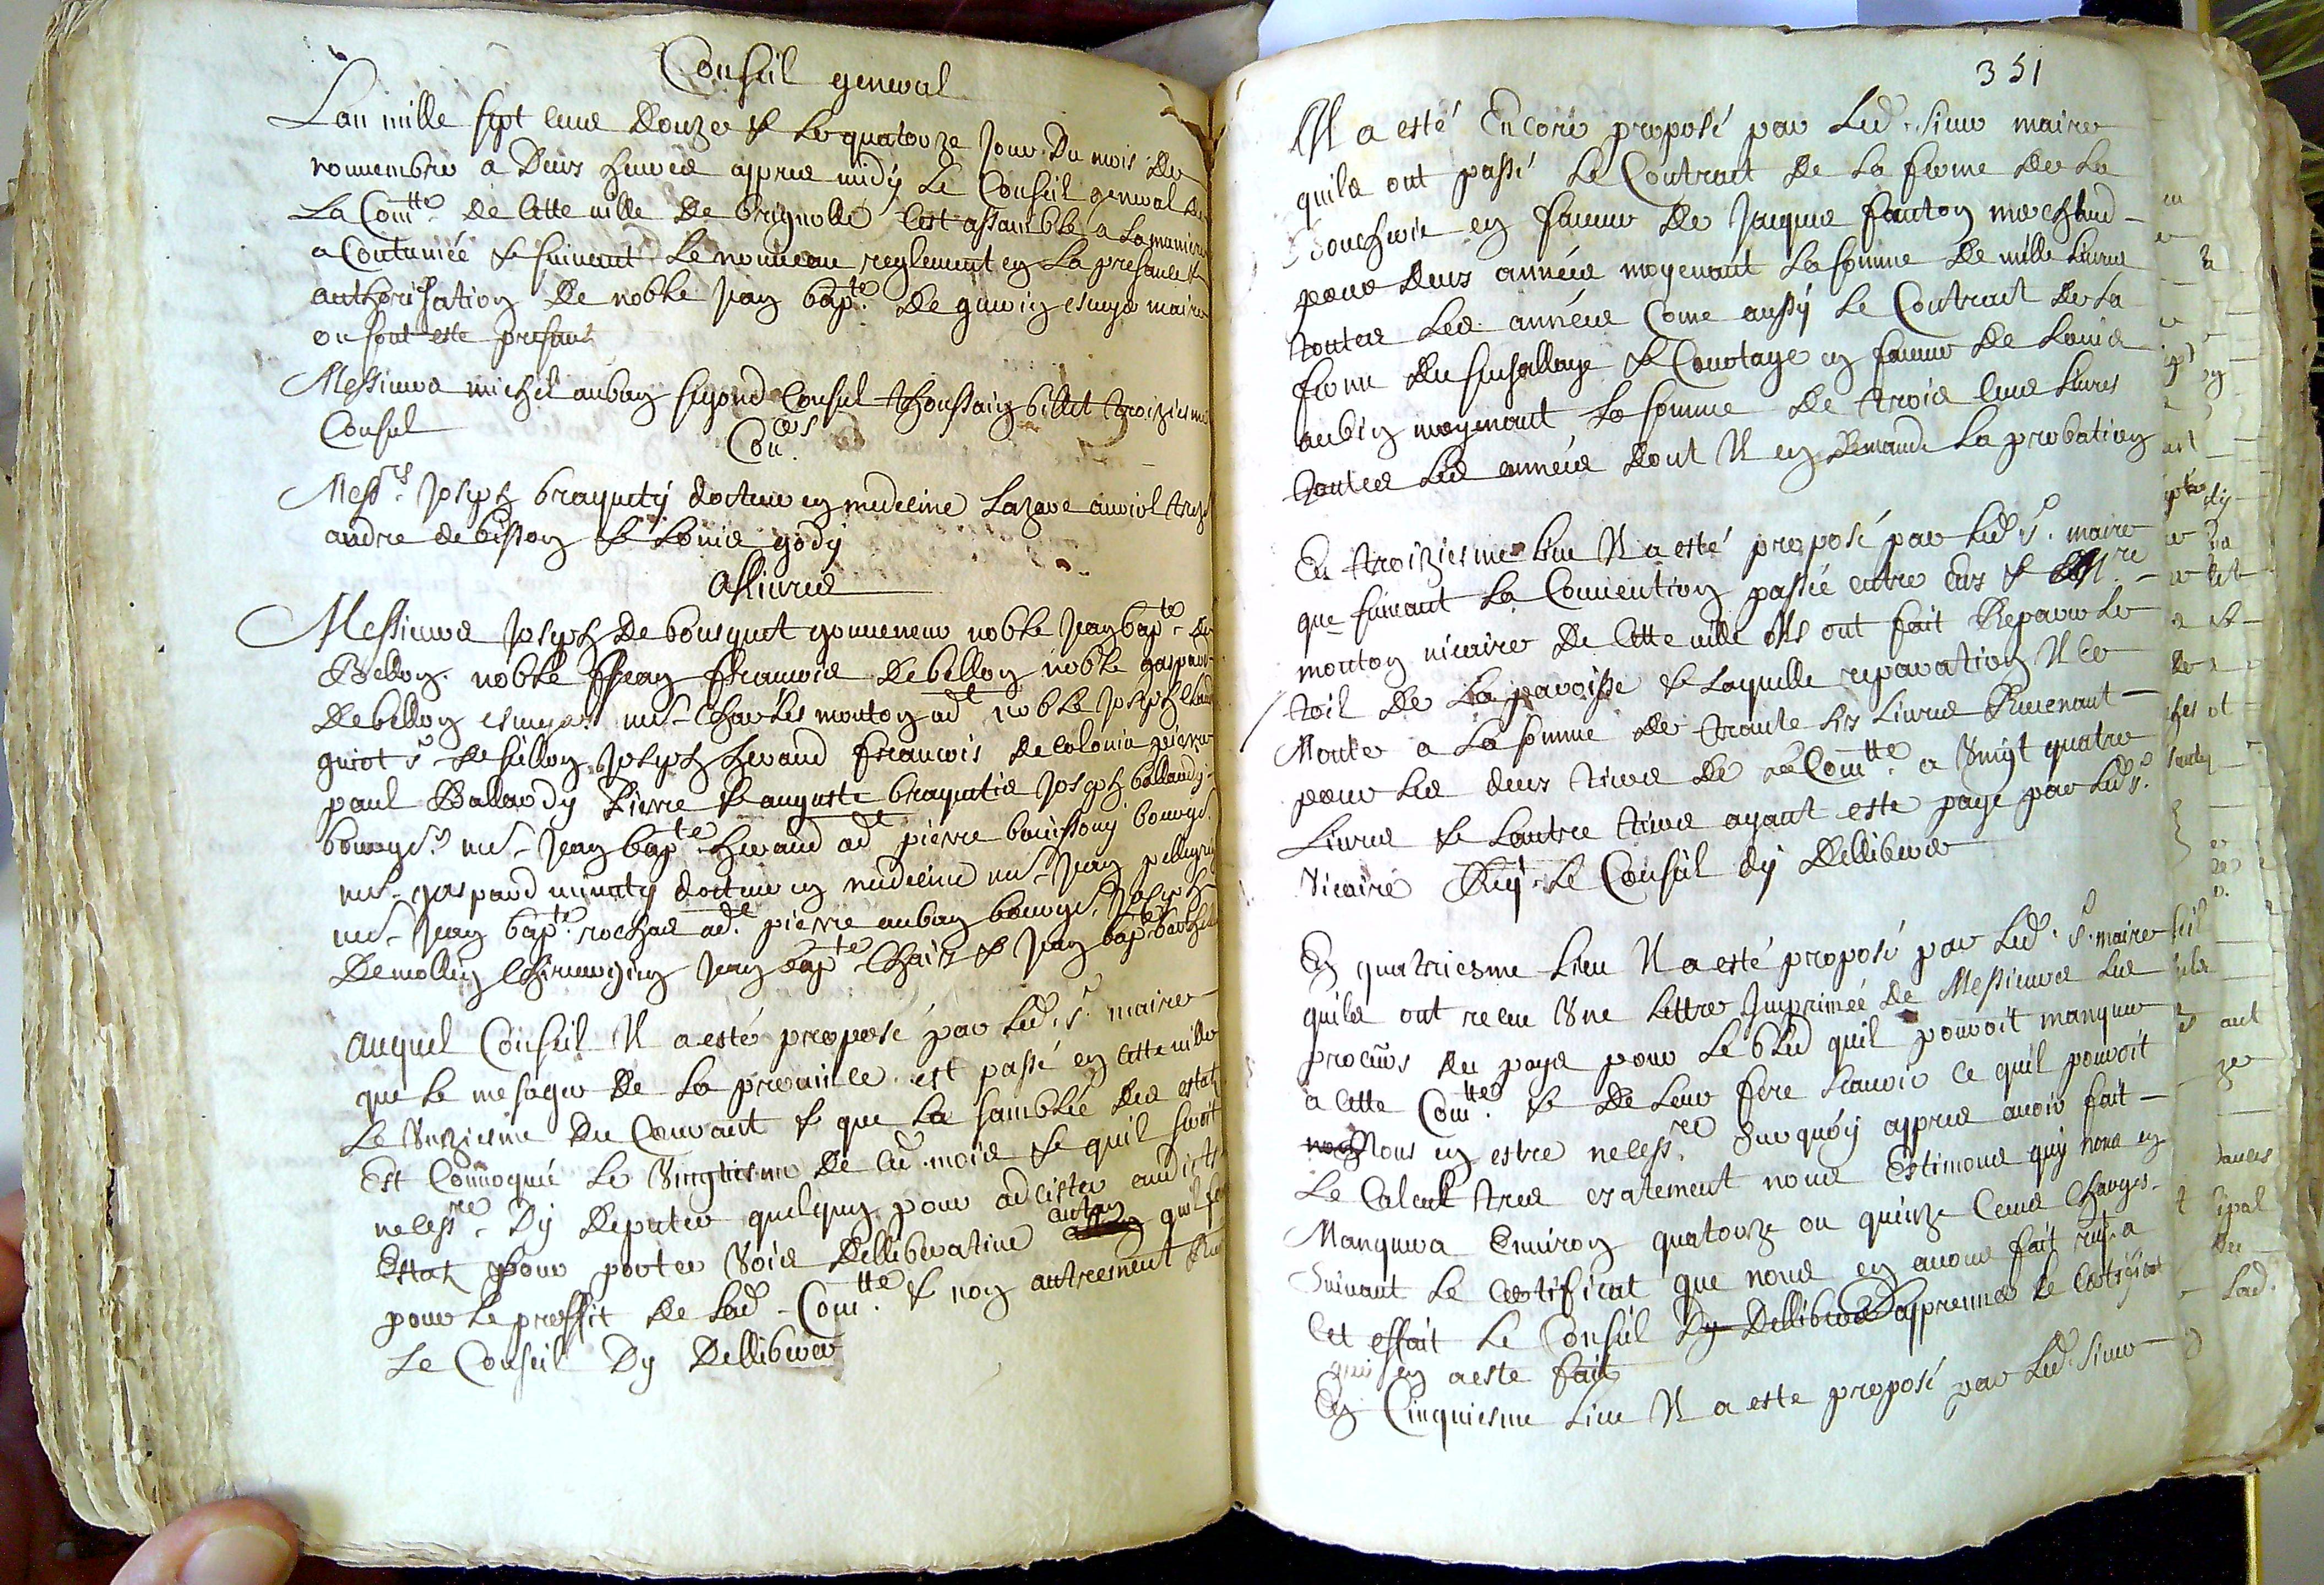 Conseil general
Lan mille sept cens douze & le quatorze jour du mois de
nouvembre a deus heures appres midy le Conseil general de
la Com.tté de cette ville de brignolle cest assamblé a la maniere
acoutumée & suivant le nouveau reglement en la presance &
authorisation de noble jean bap.te de esuyer maire
ou sont este presans
Messieurs michel auban segond Consul thoussain billet troiziesme
Consul
Con.ers
Mess.rs joseph braquety docteur en medecine Lazare auriol
andre debisson & Louis gody
Allivres
Messieurs joseph de bousquet gouverneur noble jean bap.te de
Bellon noble jean francois de bellon noble gaspard
debellon esuyers me Charles mouton ad.t noble joseph
guiot s.r de sillon joseph heraud francois de colonia pierre
paul Ballardy Pierre & auguste braquetis joseph ballardy
bourgs me jean bap.te heraud ad.t pierre bouissony bourgs.
me gaspard minuty docteur en medecine me jean pellegrin
me jean bap.te rochas ad.t pierre auban bourgs. joseph
demollin chirurgien jean bap.te Chaix & jean bap.te
auquel Conseil Il a esté proposé par led. s.r maire
que le mesager de la province est passé en cette ville
le unziesme du Courant & que la samblée des estats
Est Convoqué le vingtiesme de ce mois & quil seroit
necess.re dy deputer quelqun pour adcister ausdicts
Estats pour porter voix delliberative autan quil
pour le proffit de lad. Com.tté & non autrement
Le Conseil dy dellibere
351
Il a esté Encore proposé par led. sieur maire
quils ont passé le Contract de la ferme de la
Boucherie en faveur de jaques fauton marchand
pour deus années moyenant la somme de mille livres
toutes les années Come aussy le Contract de la
ferme du & Courtage en faveur de Louis
aubin moyenant la somme de trois cens livres
toutes les années dont Il en demande la probation
En troiziesme lieu Il a esté proposé par led. s.r maire
que suivant la Convention passée entre Eux & M.re
mouton vicaire de cette ville Ils ont fait Reparer le
toit de la paroisse & laquelle reparation Il ce
Monte a la somme de trante six Livres Revenant
pour les deus tiers de la Com.tté a vingt quatre
Livres & lautre tiers ayant este payé par led. s.r
vicaire Requ. Le Conseil dy dellibere
En quatriesme lieu Il a esté proposé par led. s.r maire
quils ont receu Une lettre Imprimée de Messieurs les
procurs du pays pour le bled quil pouvoit manquer
a cette Com.tté & de leur fere scavoir ce quil pouvoit
Nous en estre necess.re surquoy appres avoir fait
le Calcul tres exatement nous Estimons quy nous en
Manquera Environ quatorze ou quinze Cens charges
Suivant le certificat que nous en avons fait a
cet effait le Conseil dy dellibere apprenne le certificat
quil en a este fait
En Cinquiesme lieu Il a este proposé par led. sieur